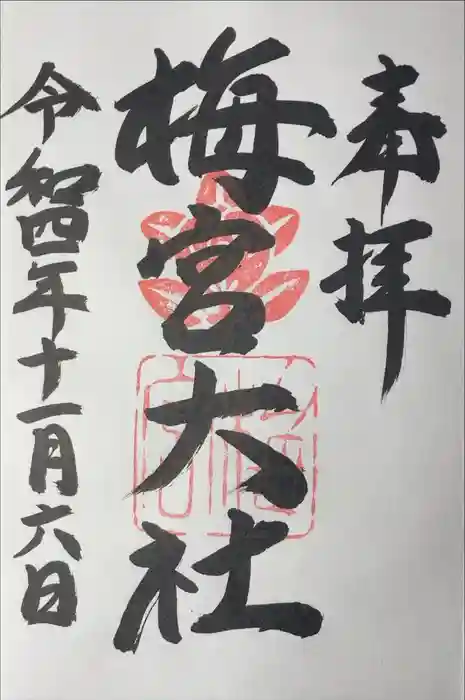 奉拝
梅宮大社
令和四年十一月六日